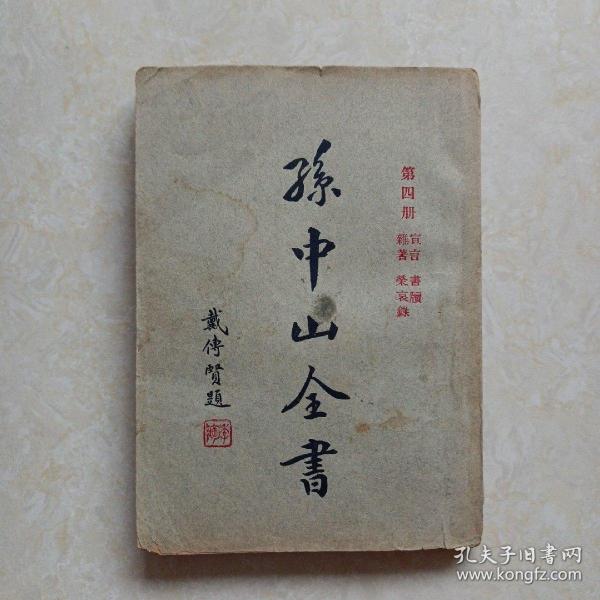 第四册
宣言 書牘
雜著 榮哀錄
孫中山全書
戴傳賢題
孔夫子旧書网
www.kongfz.com